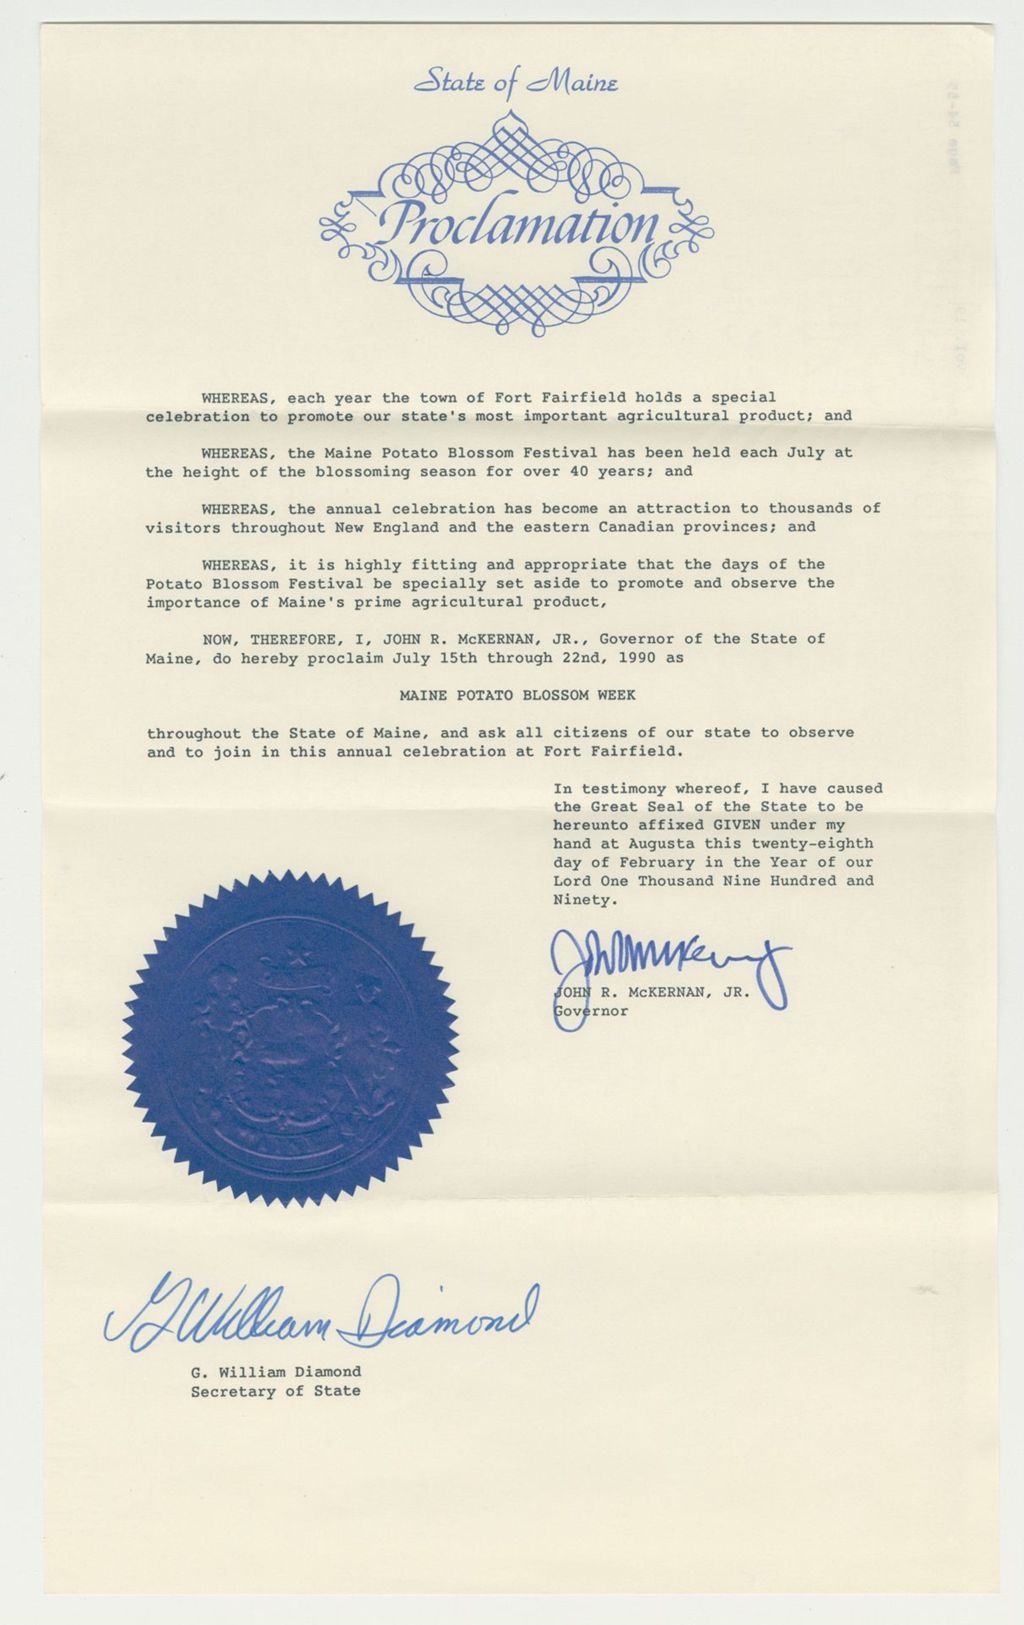 State of Maine
Proclamation
WHEREAS, each year the town of Fort Fairfield holds a special
celebration to promote our state's most important agricultural product; and
WHEREAS, the Maine Potato Blossom Festival has been held each July at
the height of the blossoming season for over 40 years; and
WHEREAS, the annual celebration has become an attraction to thousands of
visitors throughout New England and the eastern Canadian provinces; and
WHEREAS, it is highly fitting and appropriate that the days of the
Potato Blossom Festival be specially set aside to promote and observe the
importance of Maine's prime agricultural product,
NOW, THEREFORE, I, JOHN R. McKERNAN, JR., Governor of the State of
Maine, do hereby proclaim July 15th through 22nd, 1990 as
MAINE POTATO BLOSSOM WEEK
throughout the State of Maine, and ask all citizens of our state to observe
and to join in this annual celebration at Fort Fairfield.
In testimony whereof, I have caused
the Great Seal of the State to be
hereunto affixed GIVEN under my
hand at Augusta this twenty-eighth
day of February in the Year of our
Lord One Thousand Nine Hundred and
Ninety.
JOHN R. McKERNAN, JR.
Governor
MAINE
G William Diamond
G. William Diamond
Secretary of State